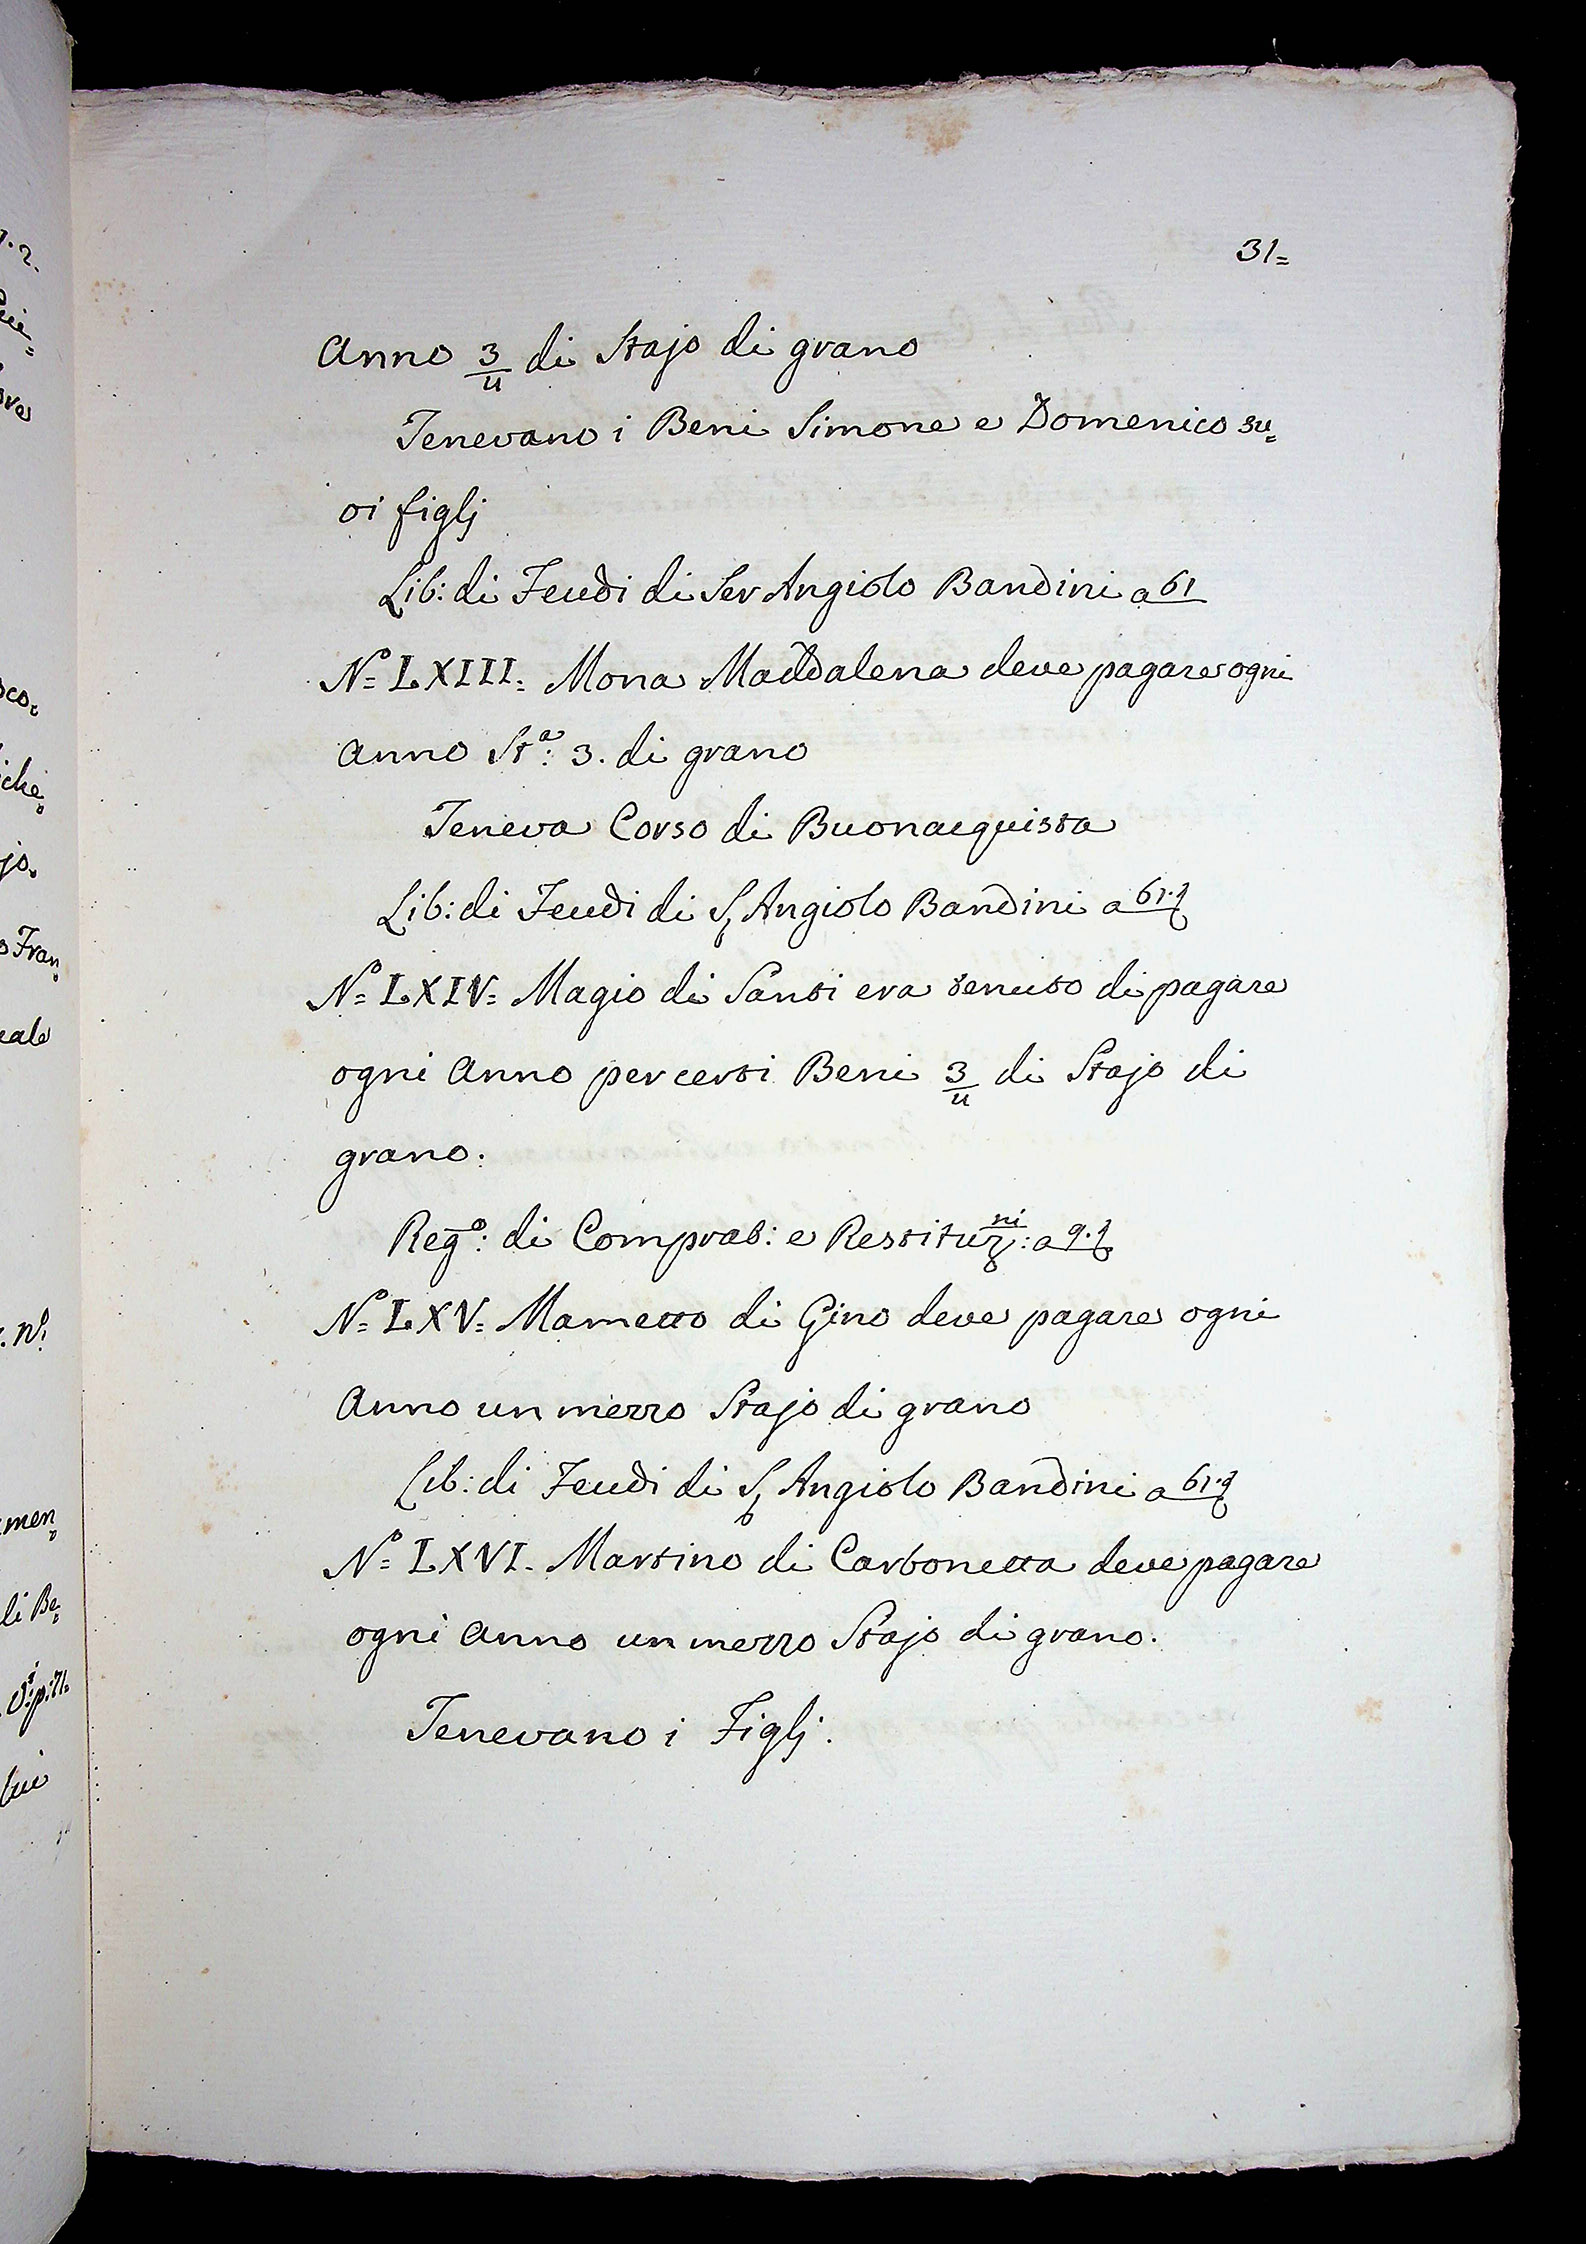 31=
Anno 3/4 di Stajo di grano
Tenevano i Beni Simone e Domenico su=
oi figlj
Lib: di Feudi di Ser Angiolo Bandini a 61
N.º LXIII. Mona Maddalena deve pagare ogni
Anno Stª: 3. di grano
Teneva Corso di Buonacquista
Lib: di Feudi di S. Angiolo Bandini a 61.t
N.º LXIV. Magio di Santi era tenuto di pagare
ogni Anno per certi Beni 3/4 di Stajo di
grano.
Regº: di Comprat: e Restituzni: a 9.t
N.º LXV. Mametto di Gino deve pagare ogni
Anno un mezzo Stajo di grano
Lib: di Feudi di S. Angiolo Bandini a 61.t
N.º LXVI. Martino di Carbonetta deve pagare
ogni Anno un mezzo Stajo di grano.
Tenevano i Figlj.